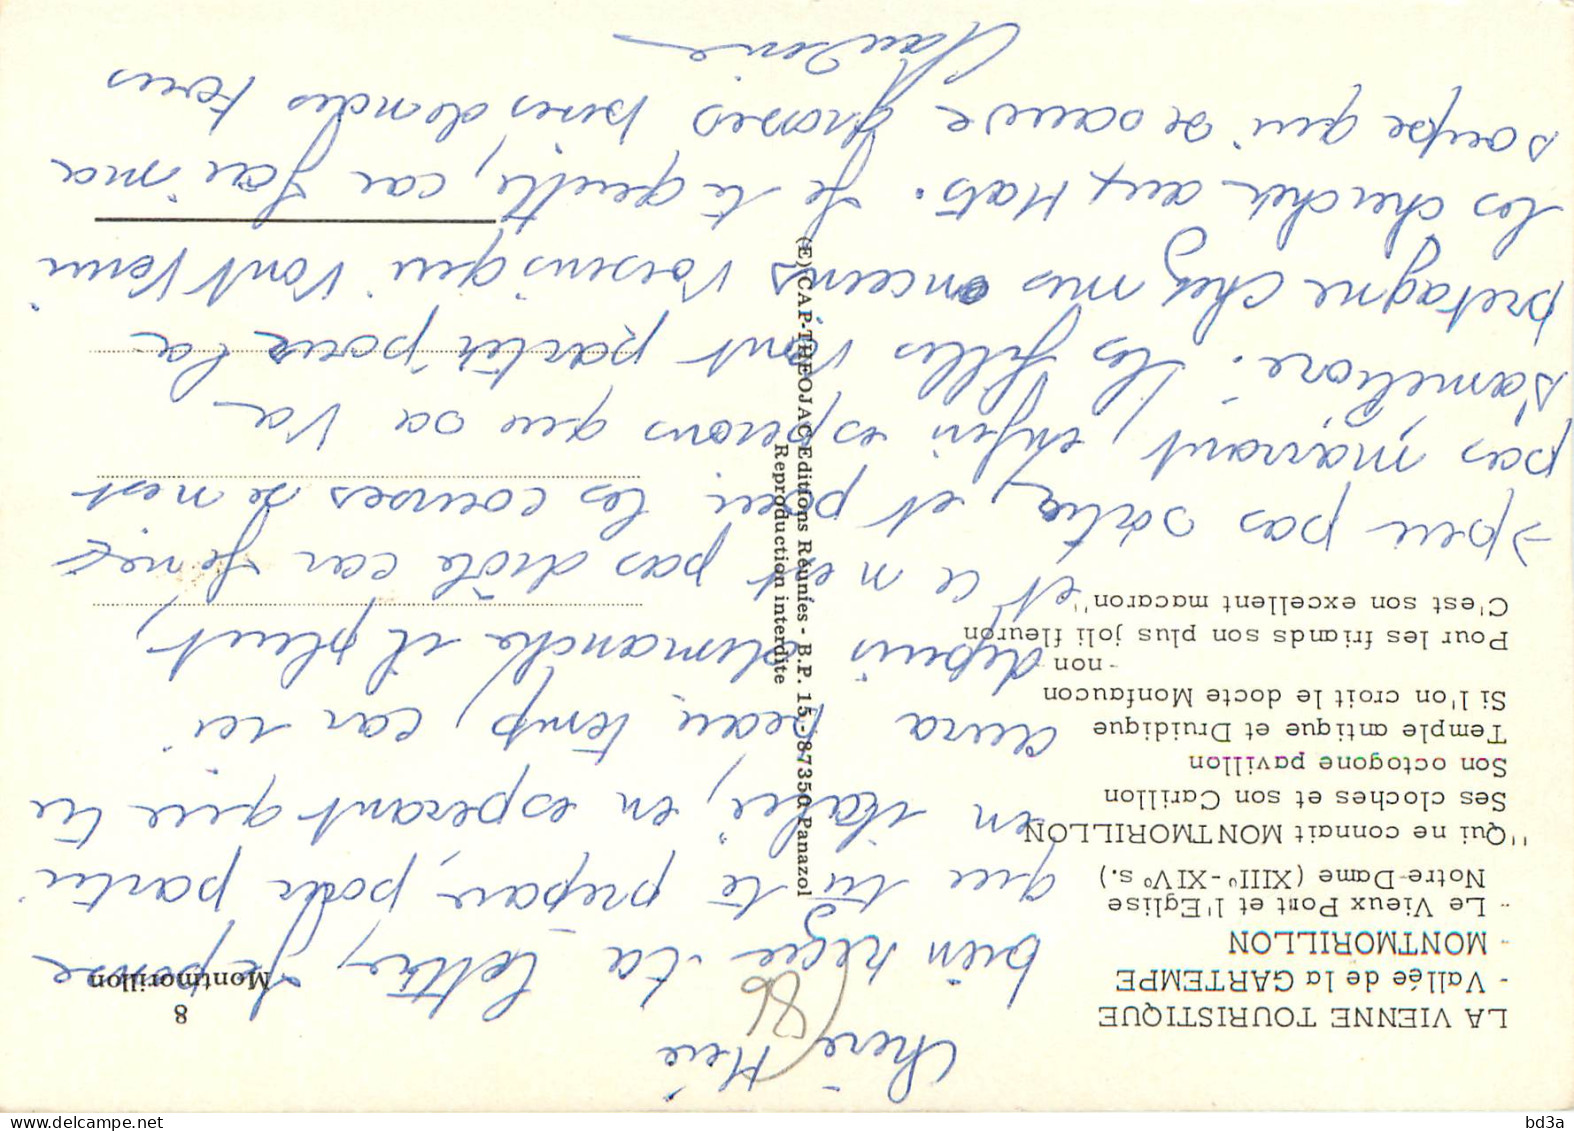 LA VIENNE TOURISTIQUE
- Vallée de la GARTEMPE
- MONTMORILLON
- Le Vieux Pont et l'Eglise
Notre-Dame (XIIIº-XIVº s.)
"Qui ne connait MONTMORILLON
Ses cloches et son Carillon
Son octogone pavillon
Temple antique et Druidique
Si l'on croit le docte Monfaucon
- non -
Pour les friands son plus joli fleuron
C'est son excellent macaron"
8
Montmorillon
(E) CAP-THEOJAC Editions Réunies - B.P. 15 - 87350 Panazol
Reproduction interdite
86
Chère
bien reçue ta lettre, Je pense
que tu te prepare pour partir
en italie, en esperant que tu
aura beau temp, car ici
depuis dimanche il pleut,
et ce n'est pas drole car Je ne
peu pas sortir, et pour les courses se nest
pas marrant, enfin esperons que sa va
s'ameliore. Les filles vont partir pour la
bretagne chez mes anciens voisins qui vont venir
les chercher aux Mats. Je te quitte, car J'ai ma
soupe qui se sauve grosses bises
Claudine
bd3a